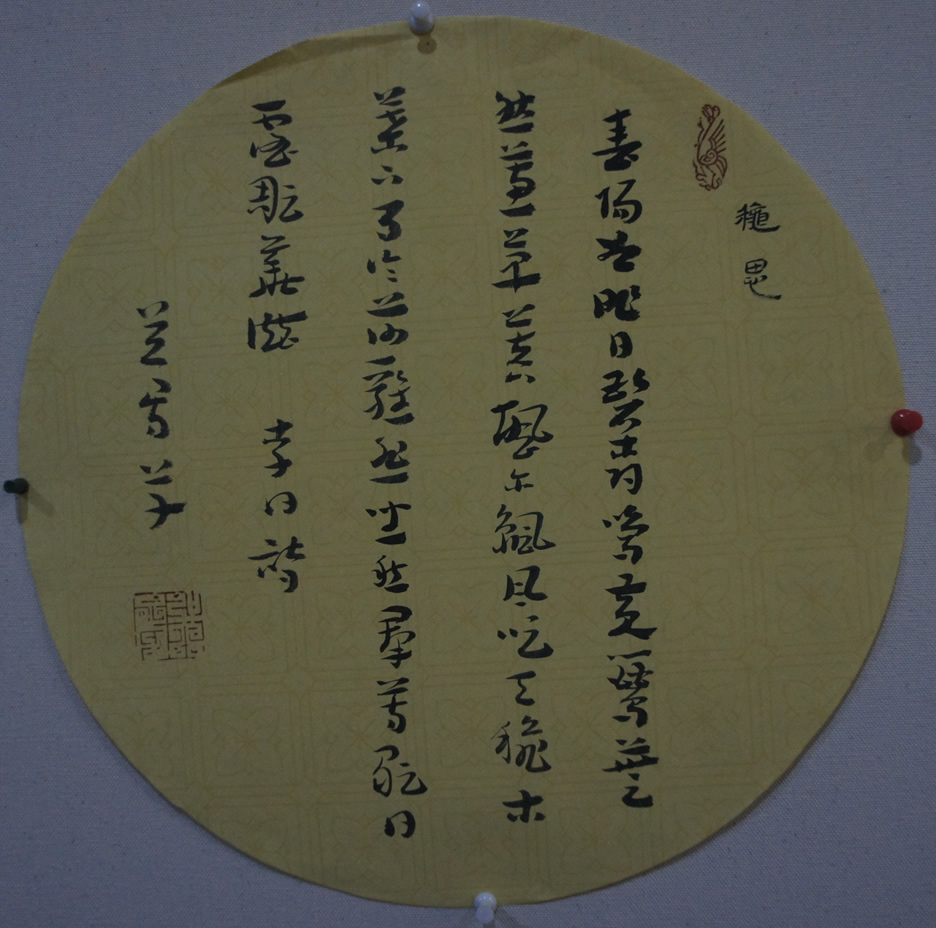 秋思
春陽如昨日碧樹鳴黄鸝蕪
然蕙草暮颯尔涼風吹天秋木
葉下月冷莎雞悲坐愁羣芳歇白
露彫華滋 李白詩